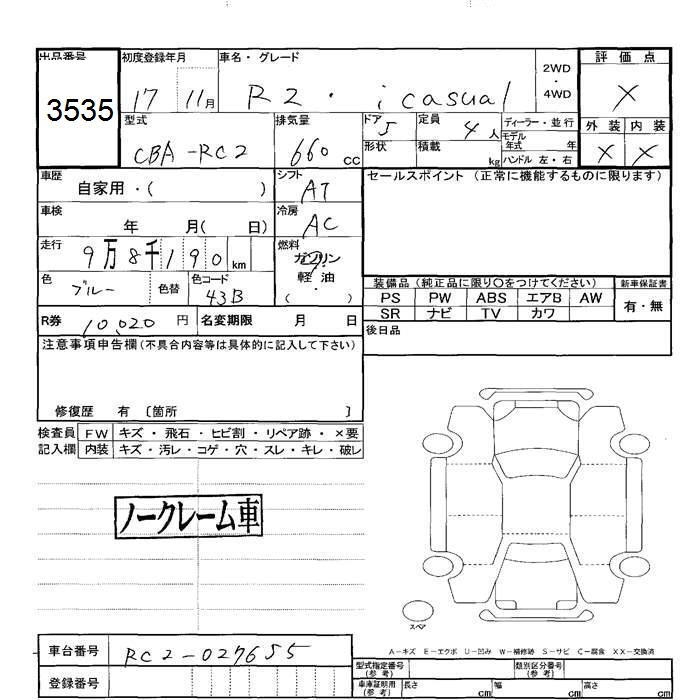 出品番号
3535
初度登録年月
17 11月
車名・グレード
R2・i casual
2WD・4WD
評価点
X
外装 内装
X X
型式
CBA-RC2
排気量
660 cc
ドア 5
形状
定員 4人
積載 kg
ディーラー・並行
モデル年式 年
ハンドル 左・右
車歴
自家用・( )
シフト
AT
セールスポイント (正常に機能するものに限ります)
車検
年 月( 日)
冷房
AC
走行
9万8千190km
燃料
ガソリン
軽油
( )
色
ブルー
色替
色コード
43B
装備品 (純正品に限り〇をつけてください)
新車保証書
PS PW ABS エアB AW
有・無
SR ナビ TV カワ
R券 10,020円
名変期限 月 日
後日品
注意事項申告欄(不具合内容等は具体的に記入して下さい)
修復歴 有 [箇所 ]
検査員 FW キズ・飛石・ヒビ割・リペア跡・×要
記入欄 内装 キズ・汚レ・コゲ・穴・スレ・キレ・破レ
ノークレーム車
スペア
A-キズ E-エクボ U-凹み W-補修跡 S-サビ C-腐食 XX-交換済
車台番号 RC2-027655
登録番号
型式指定番号(参考)
類別区分番号(参考)
車庫証明用(参考) 長さ cm 幅 cm 高さ cm